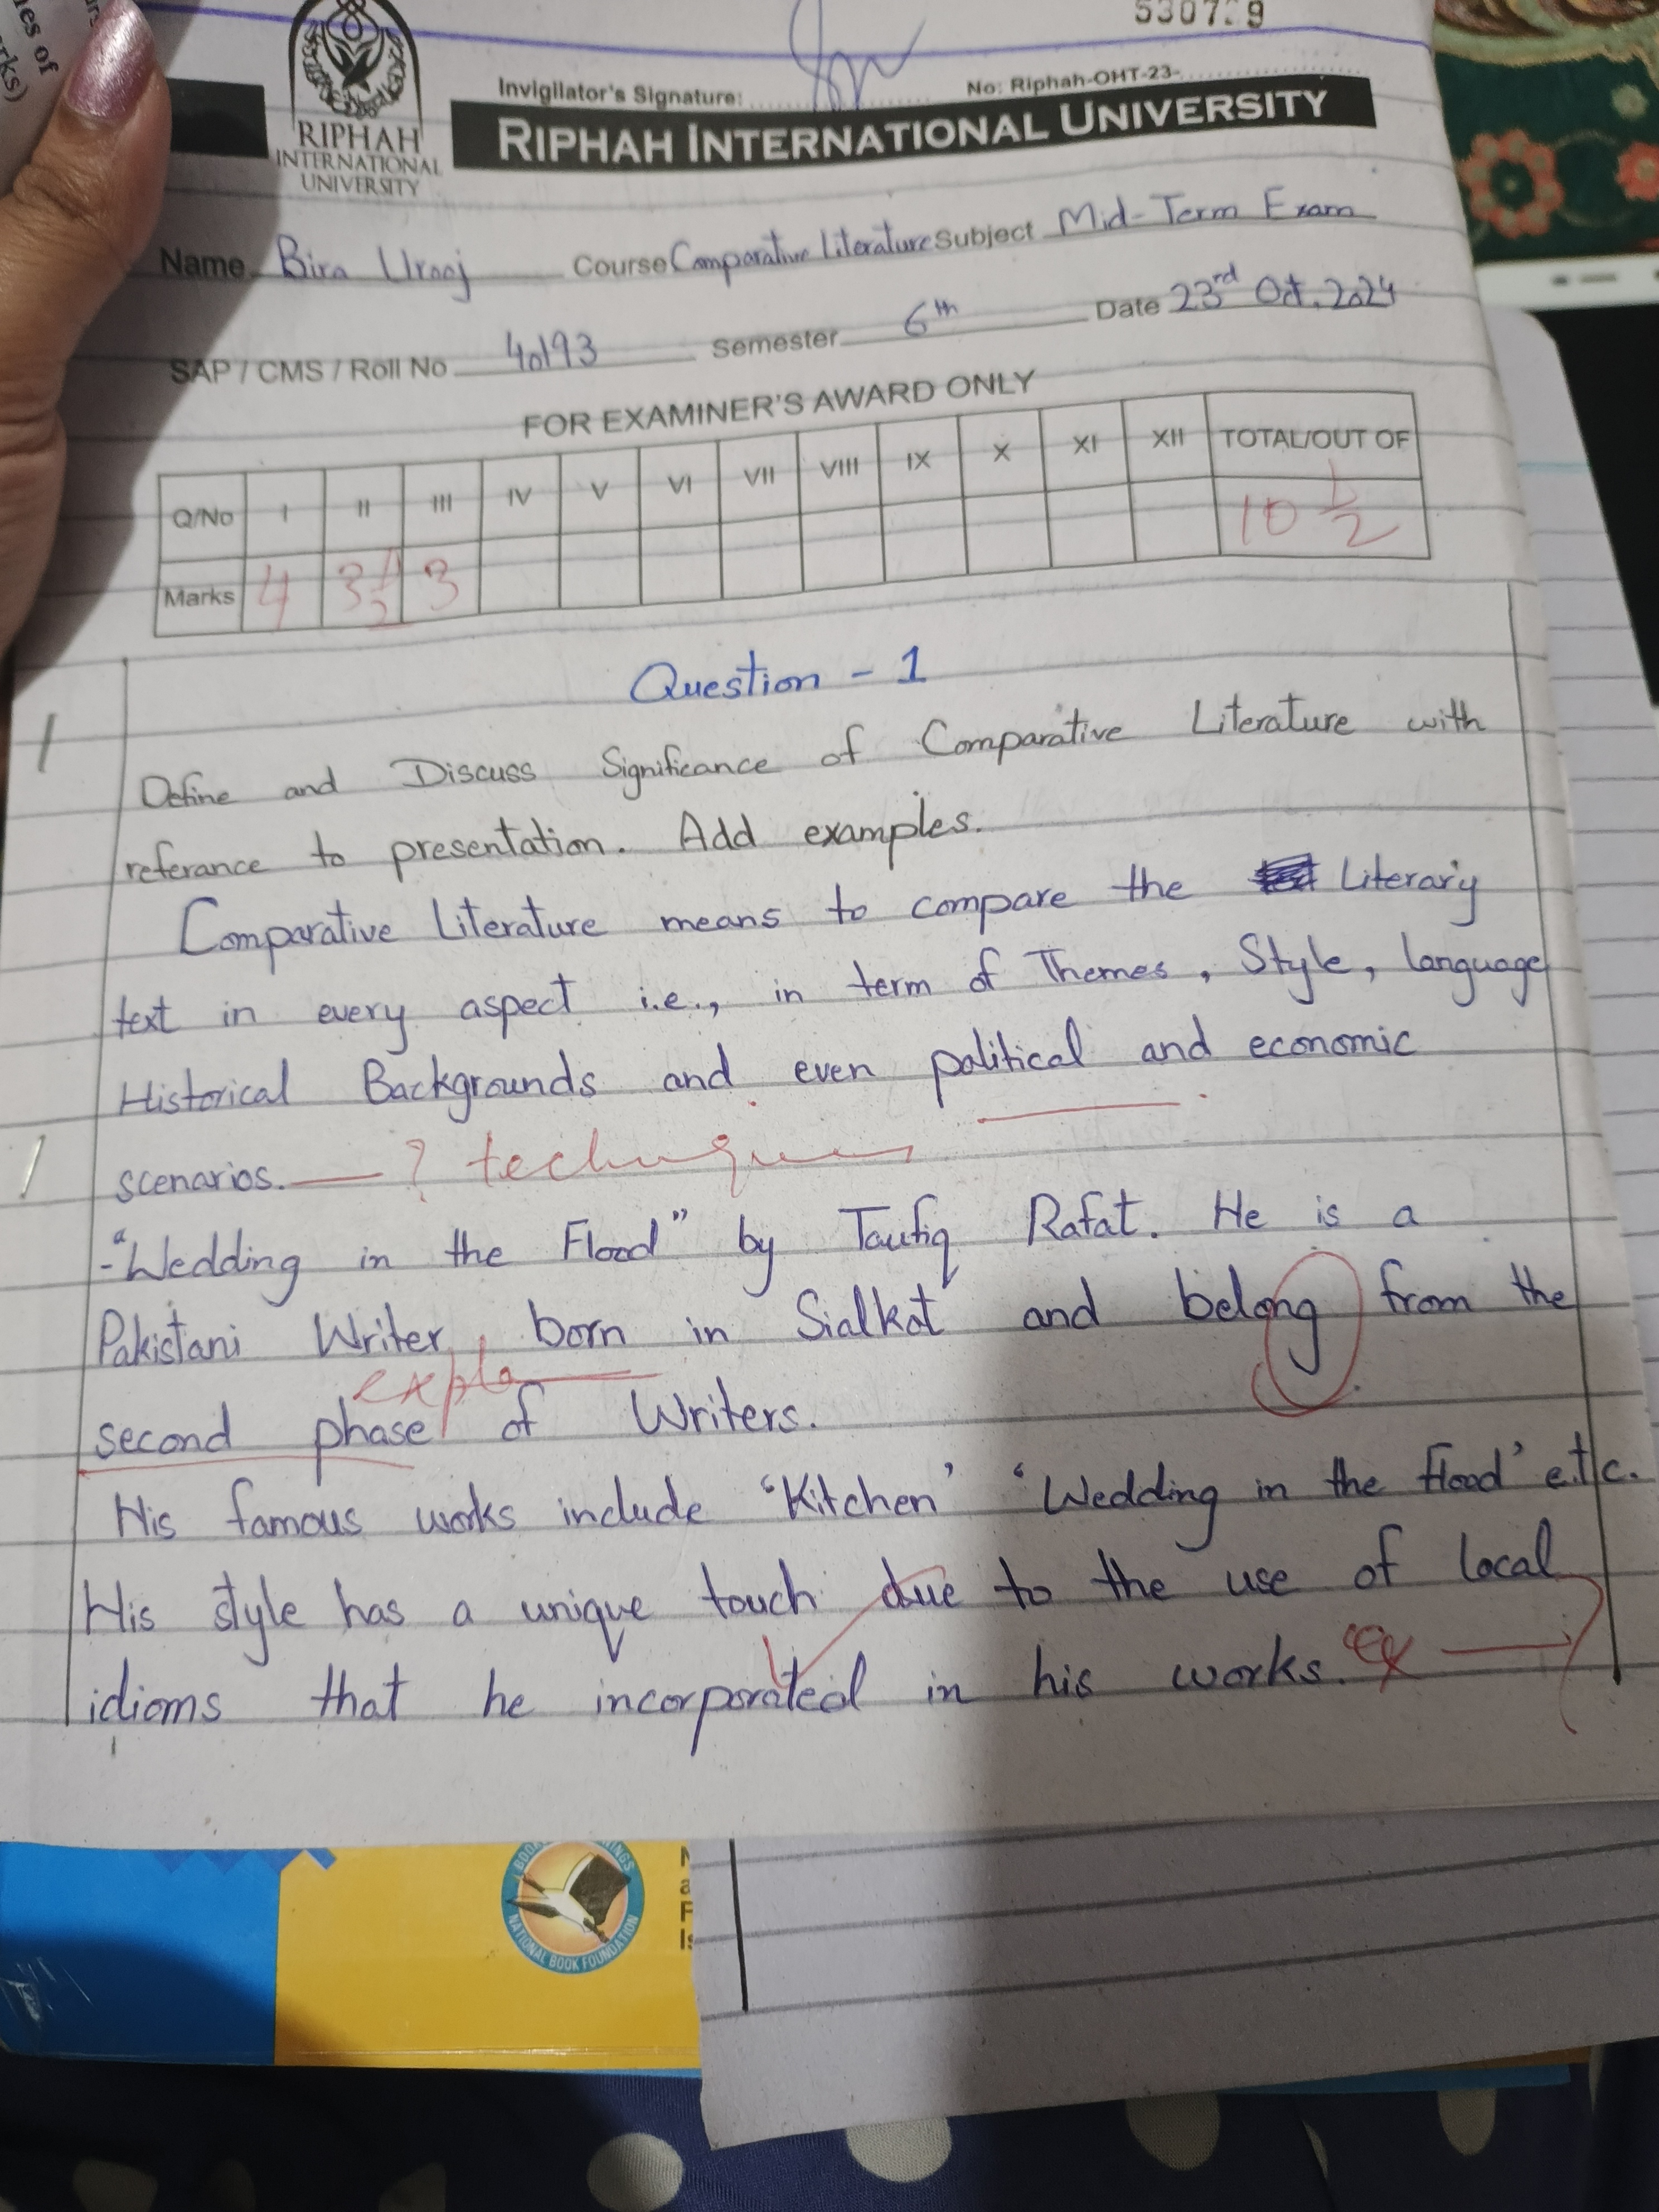 nes of
rks)
530729
Invigilator's Signature:
No: Riphah-OHT-23-
RIPHAH
INTERNATIONAL
UNIVERSITY
RIPHAH INTERNATIONAL UNIVERSITY
Name Bira Urooj Course Comparative Literature Subject Mid-Term Exam
SAP / CMS / Roll No 40193 Semester 6th Date 23rd Oct, 2024
FOR EXAMINER'S AWARD ONLY
Q/No I II III IV V VI VII VIII IX X XI XII TOTAL/OUT OF
Marks 4 3 1/2 3 10 1/2
Question - 1
Define and Discuss Significance of Comparative Literature with
referance to presentation. Add examples.
Comparative Literature means to compare the Literary
text in every aspect i.e., in term of Themes, Style, language
Historical Backgrounds and even political and economic
scenarios. ? techniques
-"Wedding in the Flood" by Taufiq Rafat. He is a
Pakistani Writer, born in Sialkot and belong from the
expla
second phase of Writers.
His famous works include 'Kitchen' 'Wedding in the flood' e.t.c.
His style has a unique touch due to the use of local
idioms that he incorporated in his works.
NATIONAL BOOK FOUNDATION